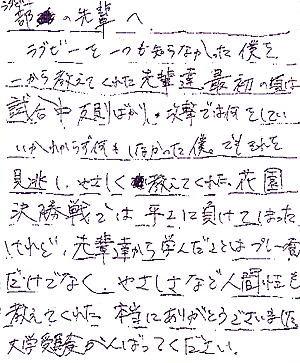 ラグビー部の先輩へ
ラグビーを一つも知らなかった僕を
一から教えてくれた先輩達。最初の頃は
試合中反則ばかり。攻撃では何をしてい
いかわからず何もしなかった僕。でもそれを
見逃し、やさしく教えてくれた。花園
決勝戦では平工に負けてしまった
けれど、先輩達から学んだことはプレー
だけでなく、やさしさなど人間性も
教えてくれた。本当にありがとうございました
大学受験がんばってください